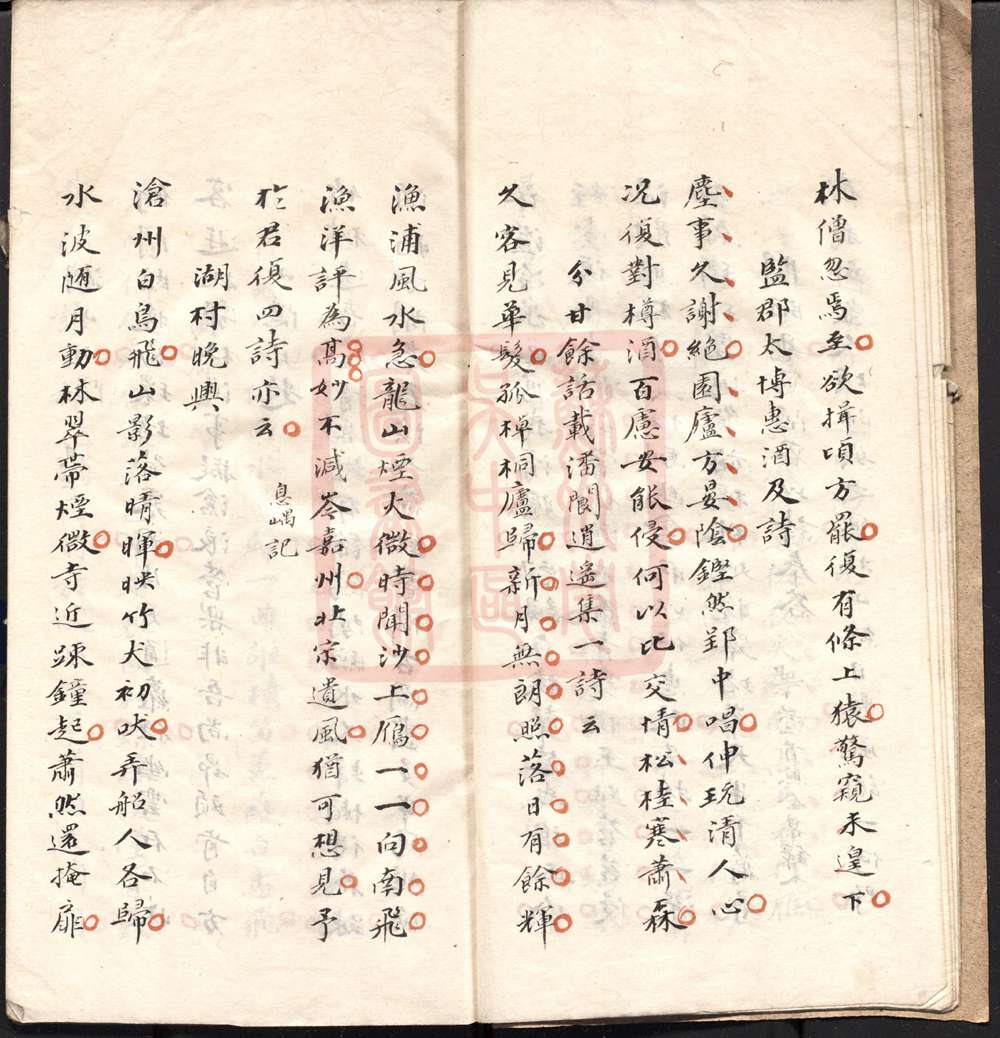 林僧忽焉至欲揖頃方罷復有條上猿驚窺未遑下
監郡太博惠酒及詩
塵事久謝絶園廬方晏陰鏗然郢中唱伸玩清人心
况復對樽酒百慮安能侵何以比交情松桂寒蕭森
分甘餘話載潘閬逍遥集一詩云
久客見華髮孤棹桐廬歸新月無朗照落日有餘輝
漁浦風水急龍山煙火微時聞沙上鴈一一向南飛
漁洋評為髙妙不減岑嘉州北宗遺風猶可想見予
於君復四詩亦云
息嵎記
湖村晚興
滄州白鳥飛山影落晴暉映竹犬初吠弄船人各歸
水波隨月動林翠帶煙微寺近疎鐘起蕭然還掩扉